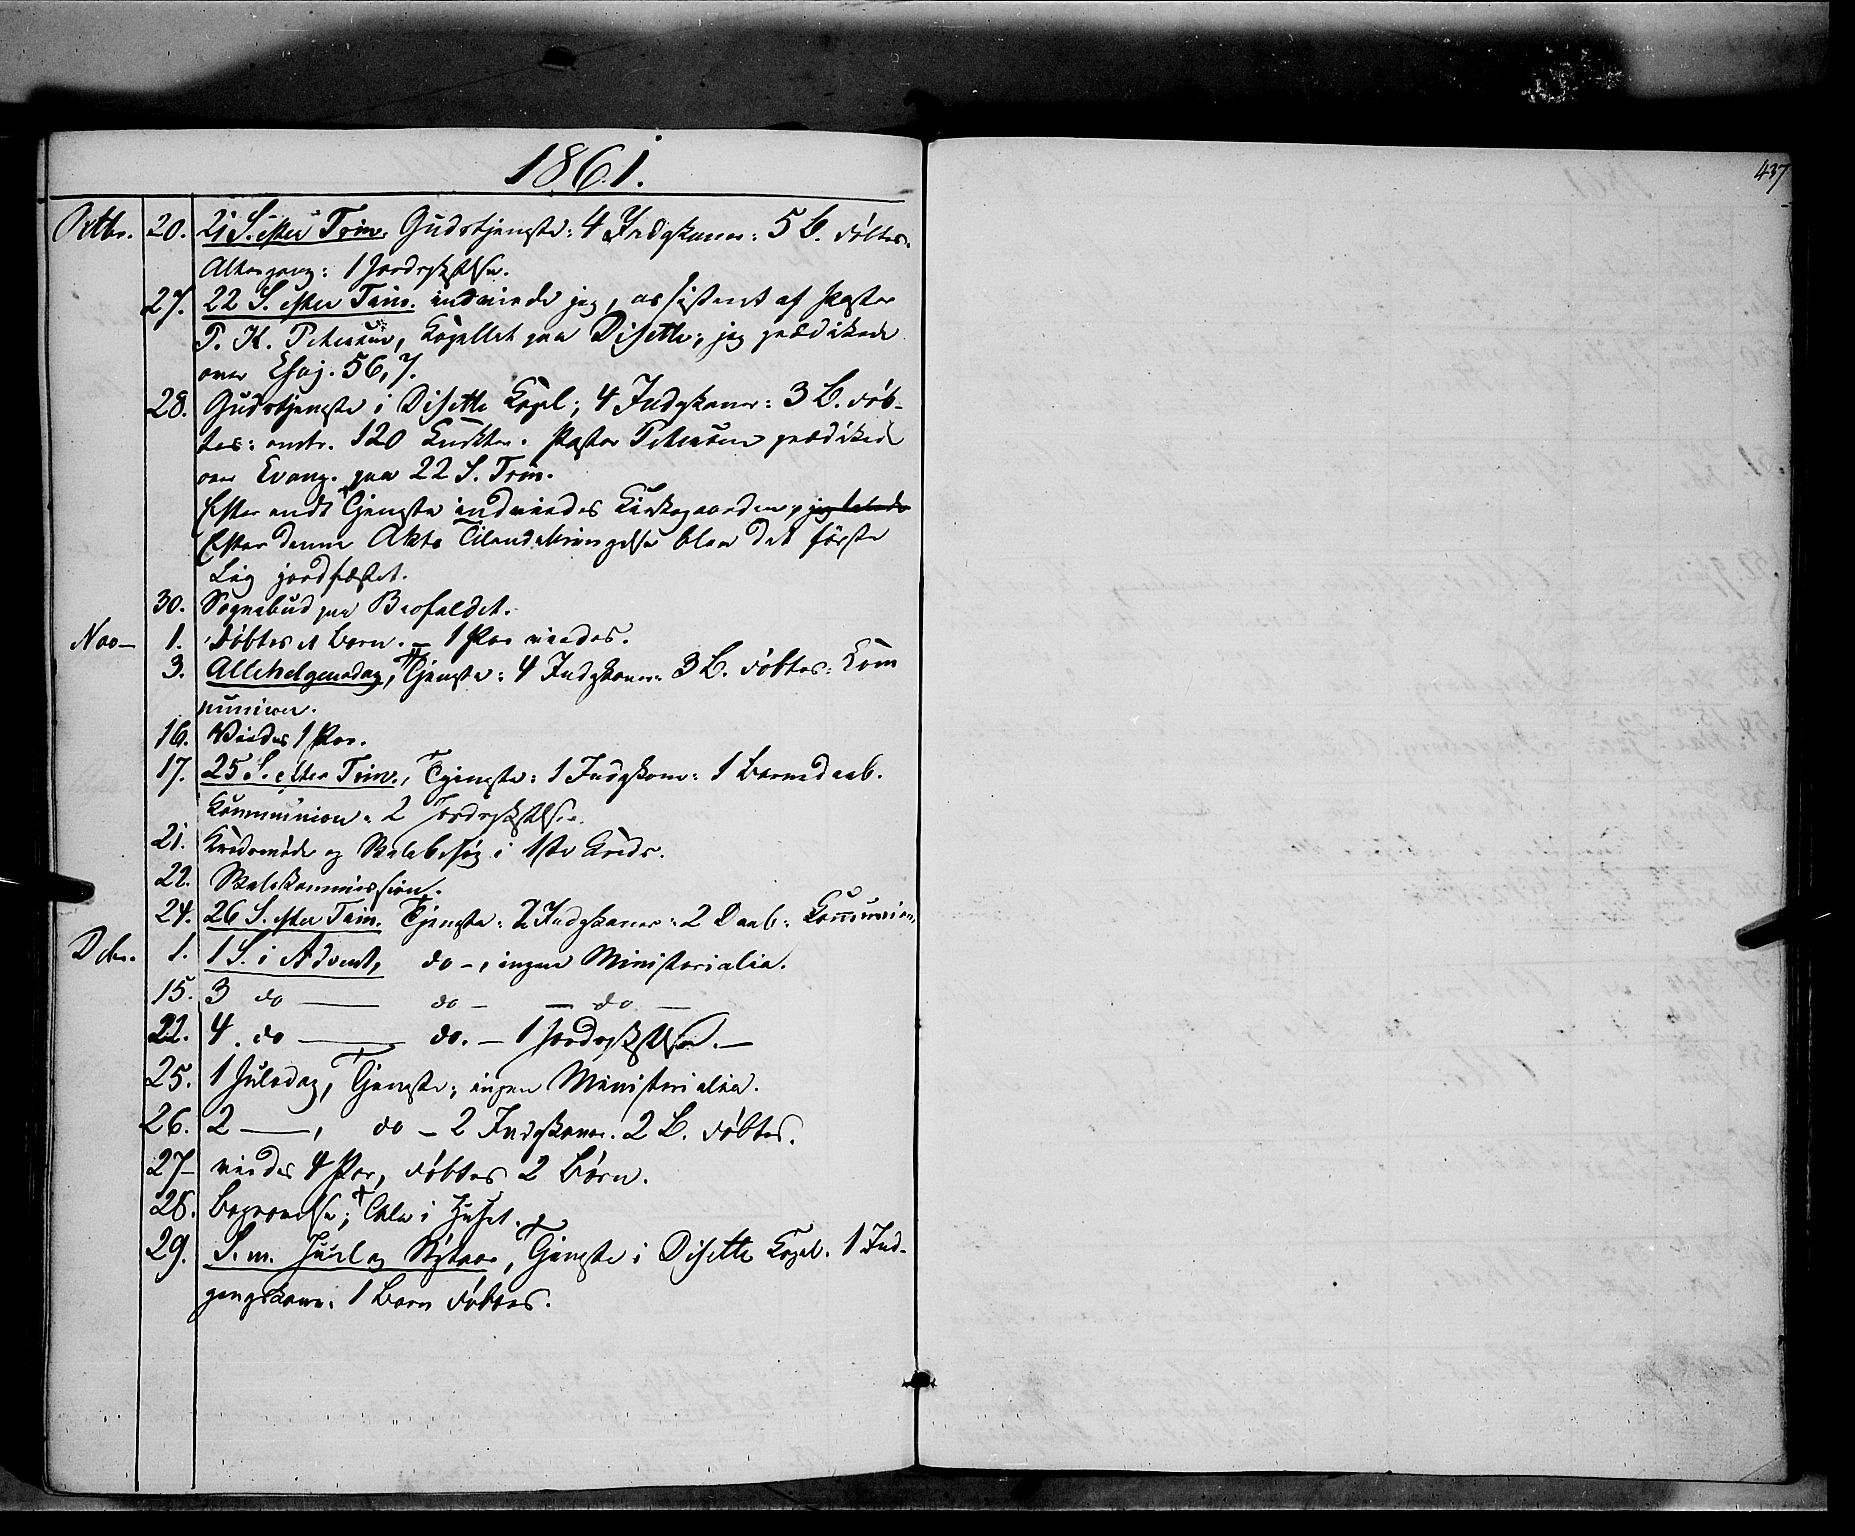 1861.
437
Octbr. 20. 21 S. efter Trin. Gudstjeneste: 4 Indgkoner: 5 B. døbtes.
Altergang: 1 Jordpkstelse.
27. 22 S. efter Trin. indviede jeg, assisteret af Pastor
P. K. Petersen, Capellet paa Disette, jeg prædikede
over Esaj. 56,7.
28. Gudstjeneste i Disette Capel; 4 Indgkoner: 3 B. døb-
tes: omtr. 120 Communikanter. Pastor Petersen prædikede
over Evang. paa 22 S. Trin.
Efter endt Tjeneste indviedes Kirkegaarden, jeg talede
Efter denne Akts Tilendebringelse blev det første
Lig jordfæstet.
30. Sognebud paa
Nov— 1. Døbtes et Barn. — 1 Par viedes.
3. Allehelgensdag, Tjeneste: 4 Indgkoner: 3 B. døbtes: Com
munion.
16. Viedes 1 Par.
17. 25 S. efter Trin., Tjeneste: 1 Indgkone: 1 Barnedaab.
Communion. 2 Jordpkstelser.
21. Kredsmøde og Skolebesøg i 1ste Kreds.
22. Skolekommission.
24. 26 S. efter Trin. Tjeneste: 2 Indgkoner: 2 Daab: Communion.
Dcbr. 1. 1 S. i Advent, do —, ingen Ministerialia.
15. 3 do — do — — do —
22. 4. do — do. — 1 Jordpkstelse. —
25. 1 Juledag, Tjeneste; ingen Ministerialia.
26. 2 —, do — 2 Indgkoner. 2 B. døbtes.
27— viedes 4 Par, døbtes 2 Børn.
28. Begravelse; Tale i Huset.
29. S. m. Juul og Nytaar, Tjeneste i Disette Capel. 1 Ind-
gangskone. 1 Barn døbtes.